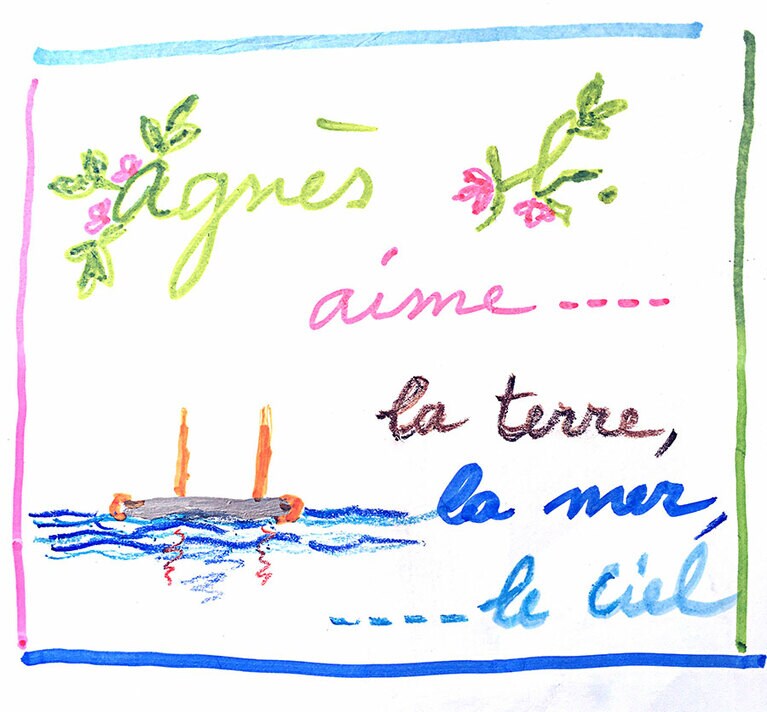 agnès b.
aime ----
la terre,
la mer,
-----le ciel